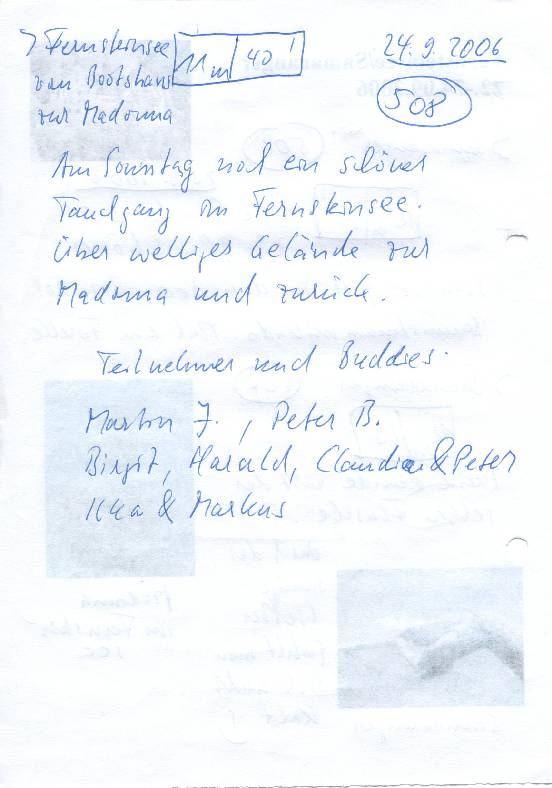 > Fernsteinsee
von Bootshaus
zur Madonna
11m 40'
24.9.2006
508
Am Sonntag noch ein schöner
Tauchgang im Fernsteinsee.
Über welliges Gelände zur
Madonna und zurück.
Teilnehmer und Buddies.
Martin J., Peter B.
Birgit, Harald, Claudia & Peter
Ilka & Markus